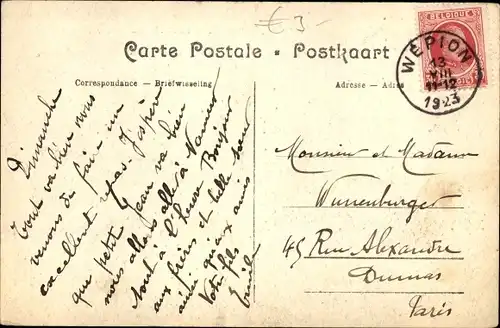 € 3-
Carte Postale - Postkaart
Correspondance — Briefwisseling
Adresse — Adres
BELGIQUE
WÉPION
13
VIII
11-12
1923
Dimanche
Tout va bien nous
venons de faire un
excellent repas. J'espère
que petit Jean va bien
nous allons aller à Namur
tout à l'heure Bonjour
aux frères et belle sœur
ainsi qu'aux amis
Votre fils
Emile
Monsieur et Madame
Wunenburger
45 Rue Alexandre
Dumas
Paris